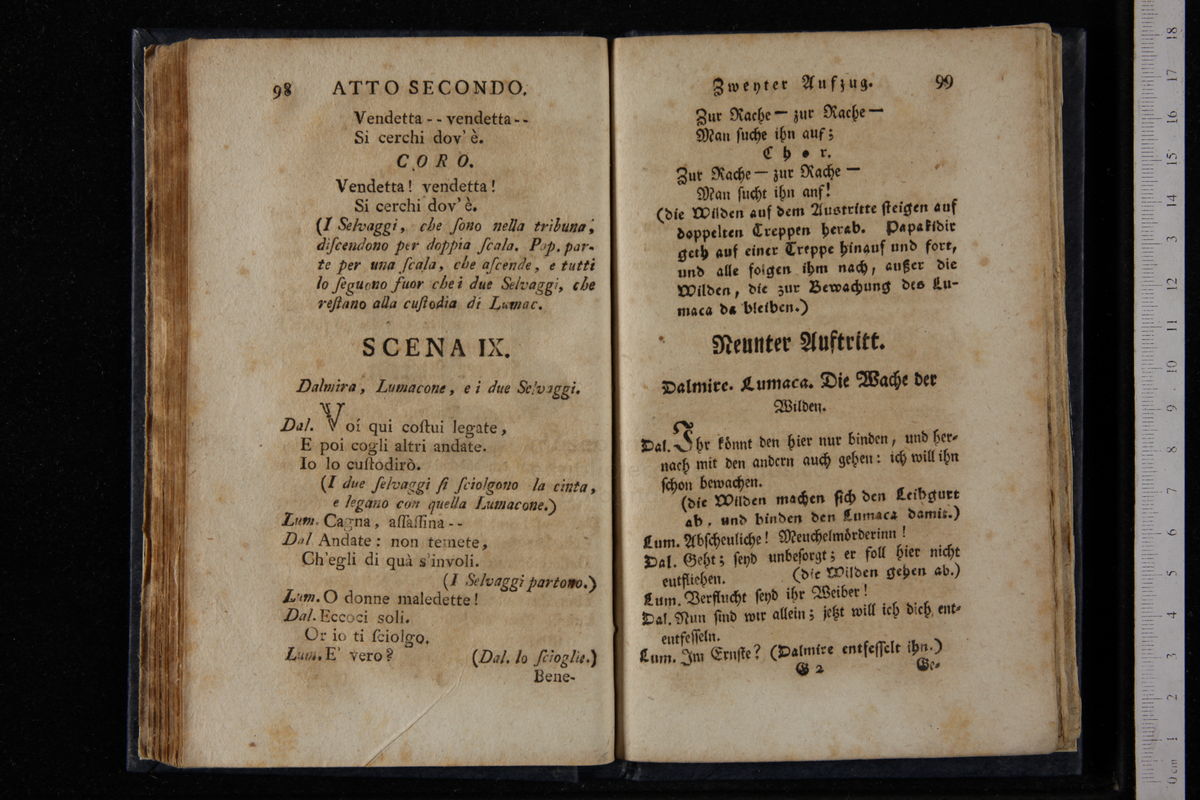 98 ATTO SECONDO.
Vendetta - - vendetta - -
Si cerchi dov' è.
CORO.
Vendetta! vendetta!
Si cerchi dov' è.
(I Selvaggi, che ſono nella tribuna,
diſcendono per doppia ſcala. Pap. par-
te per una ſcala, che aſcende, e tutti
lo ſeguono fuor che i due Selvaggi, che
reſtano alla cuſtodia di Lumac.
SCENA IX.
Dalmira, Lumacone, e i due Selvaggi.
Dal. Voi qui coſtui legate,
E poi cogli altri andate.
Io lo cuſtodirò.
(I due ſelvaggi ſi ſciolgono la cinta,
e legano con quella Lumacone.)
Lum. Cagna, aſſaſſina - -
Dal. Andate: non temete,
Ch'egli di quà s'involi.
(I Selvaggi partono.)
Lum. O donne maledette!
Dal. Eccoci soli.
Or io ti ſciolgo.
Lum. E' vero? (Dal. lo ſcioglie.)
Bene-
Zweyter Aufzug. 99
Zur Rache — zur Rache —
Man ſuche ihn auf;
Chor.
Zur Rache — zur Rache —
Man ſucht ihn auf!
(die Wilden auf dem Austritte ſteigen auf
doppelten Treppen herab. Papakidir
geth auf einer Treppe hinauf und fort,
und alle folgen ihm nach, außer die
Wilden, die zur Bewachung des Lu-
maca da bleiben.)
Neunter Auftritt.
Dalmire. Lumaca. Die Wache der
Wilden.
Dal. Ihr könnt den hier nur binden, und her-
nach mit den andern auch gehen: ich will ihn
ſchon bewachen.
(die Wilden machen ſich den Leibgurt
ab, und binden den Lumaca damit.)
Lum. Abſcheuliche! Meuchelmörderinn!
Dal. Geht; ſeyd unbeſorgt; er ſoll hier nicht
entfliehen. (die Wilden gehen ab.)
Lum. Verflucht ſeyd ihr Weiber!
Dal. Nun ſind wir allein; jetzt will ich dich ent-
entfeſſeln.
Lum. Im Ernſte? (Dalmire entfeſſelt ihn.)
G 2 Ge-
0 cm 1 2 3 4 5 6 7 8 9 10 11 12 13 14 15 16 17 18